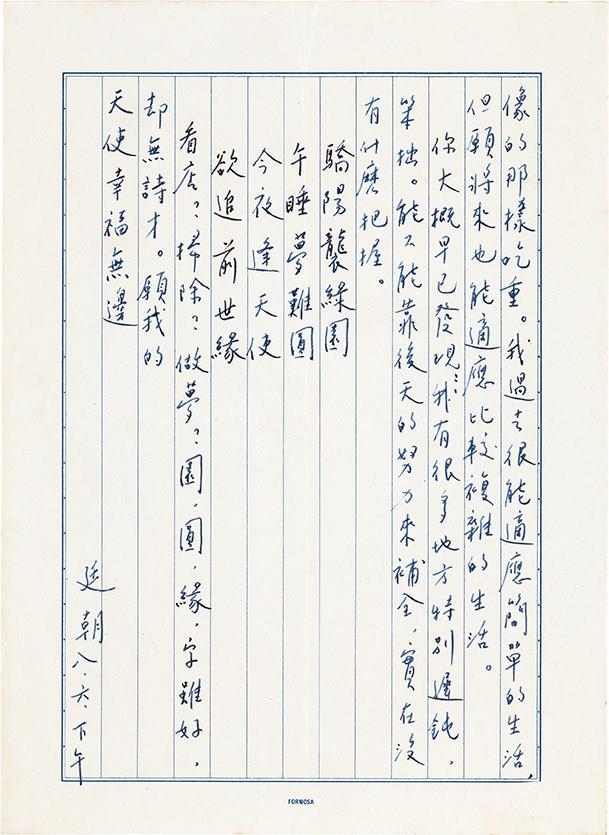 像的那樣吃重。我過去很能適應簡單的生活,
但願將來也能適應比較複雜的生活。
你大概早已發現:我有很多地方特別遲鈍,
笨拙。能不能靠後天的努力來補全,實在沒
有什麼把握。
驕陽襲綠園
午睡夢難圓
今夜逢天使
欲追前世緣
看店?掃除?做夢?園,圓,緣,字雖好,
却無詩才。願我的
天使幸福無邊
廷朝八.六.下午
FORMOSA